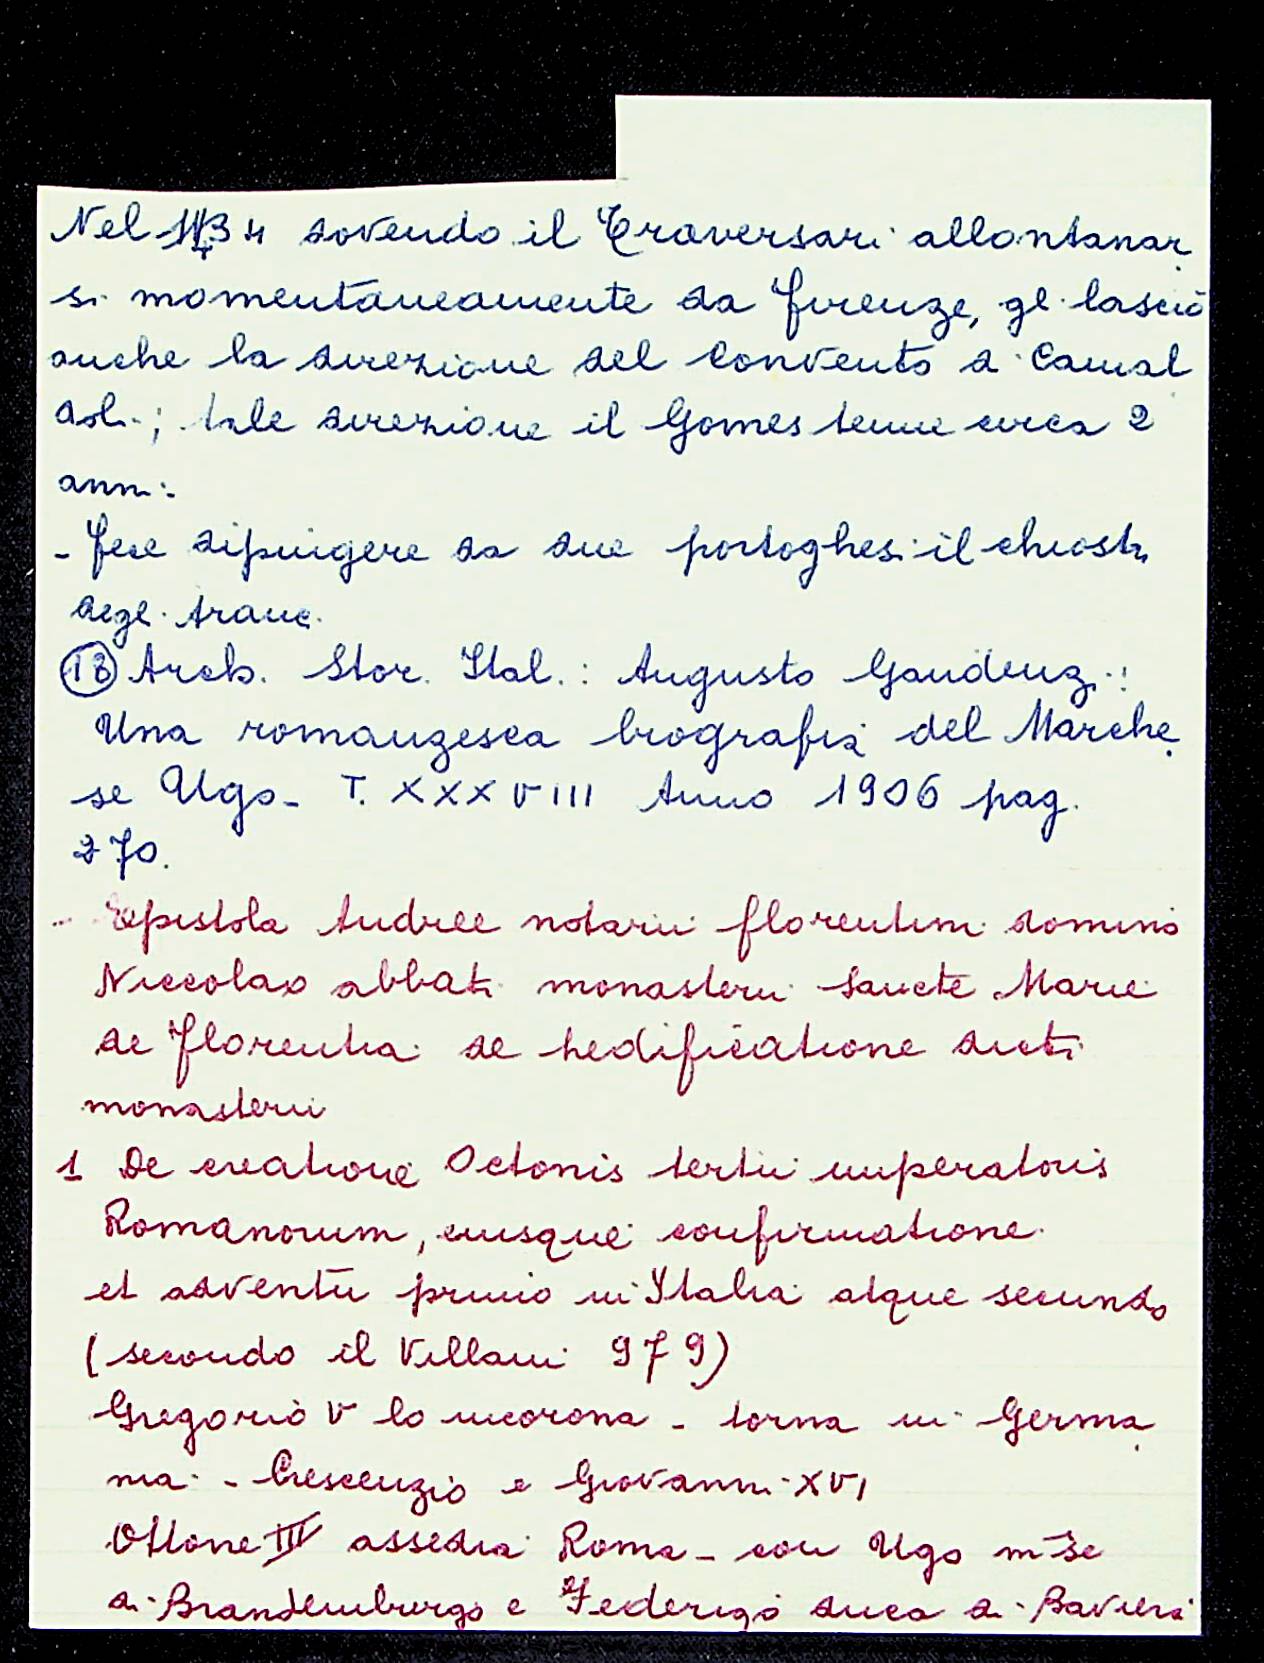 Nel 1434 dovendo il Traversari allontanar
si momentaneamente da Firenze, gli lasciò
anche la direzione del Convento di Camal
doli; tale direzione il Gomes tenne circa 2
anni.
- Fece dipingere da due portoghesi il chiostro
degli Aranc.
(18) Arch. Stor. Ital.: Augusto Gaudenzi:
Una romanzesca biografia del Marche
se Ugo - T. XXXVIII Anno 1906 pag.
270.
- Epistola Andree notarii florentini domino
Niccolao abbati monasterii Sancte Marie
de Florentia de hedificatione dicti
monasterii
1 De creatione Octonis tertii imperatoris
Romanorum, eiusque confirmatione
et adventu primo in Ytalia atque secundo
(secondo il Villani 979)
Gregorio V lo incorona - torna in Germa
nia - Crescenzio e Giovanni XVI
Ottone III assedia Roma - con Ugo m-se
di Brandemburgo e Federigo duca di Baviera